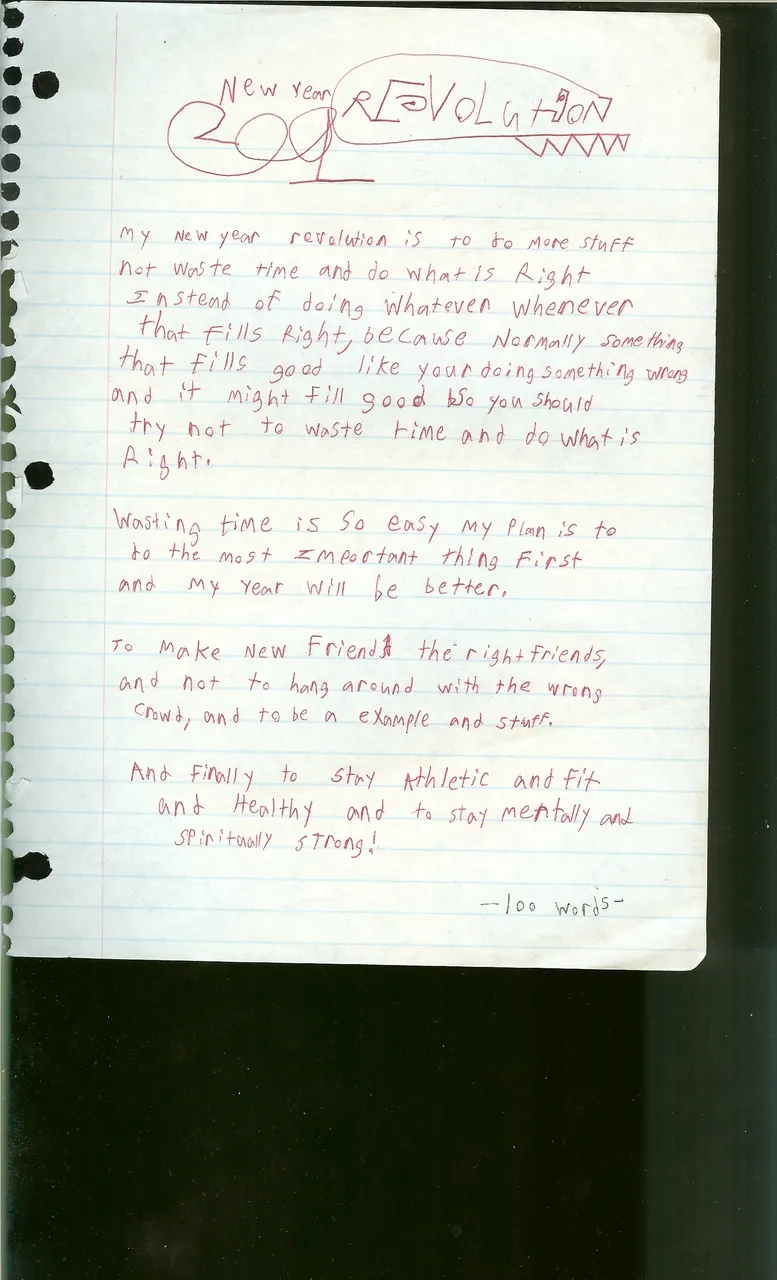 New Year REVOLUtION
2009
My New year revolution is to do more stuff
not waste time and do what is Right
Instead of doing whatever whenever
that fills Right, because Normally something
that fills good like your doing something wrong
and it might fill good so you should
try not to waste time and do what is
Right.
Wasting time is so easy my plan is to
do the most Important thing First
and my year will be better.
To make New Friends the right friends,
and not to hang around with the wrong
crowd, and to be a example and stuff.
And Finally to stay Athletic and fit
and Healthy and to stay mentally and
spiritually strong!
-100 words-